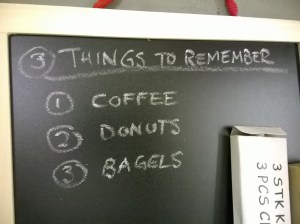 ③ THINGS TO REMEMBER
① COFFEE
② DONUTS
③ BAGELS
3 STK K
3 PCS C